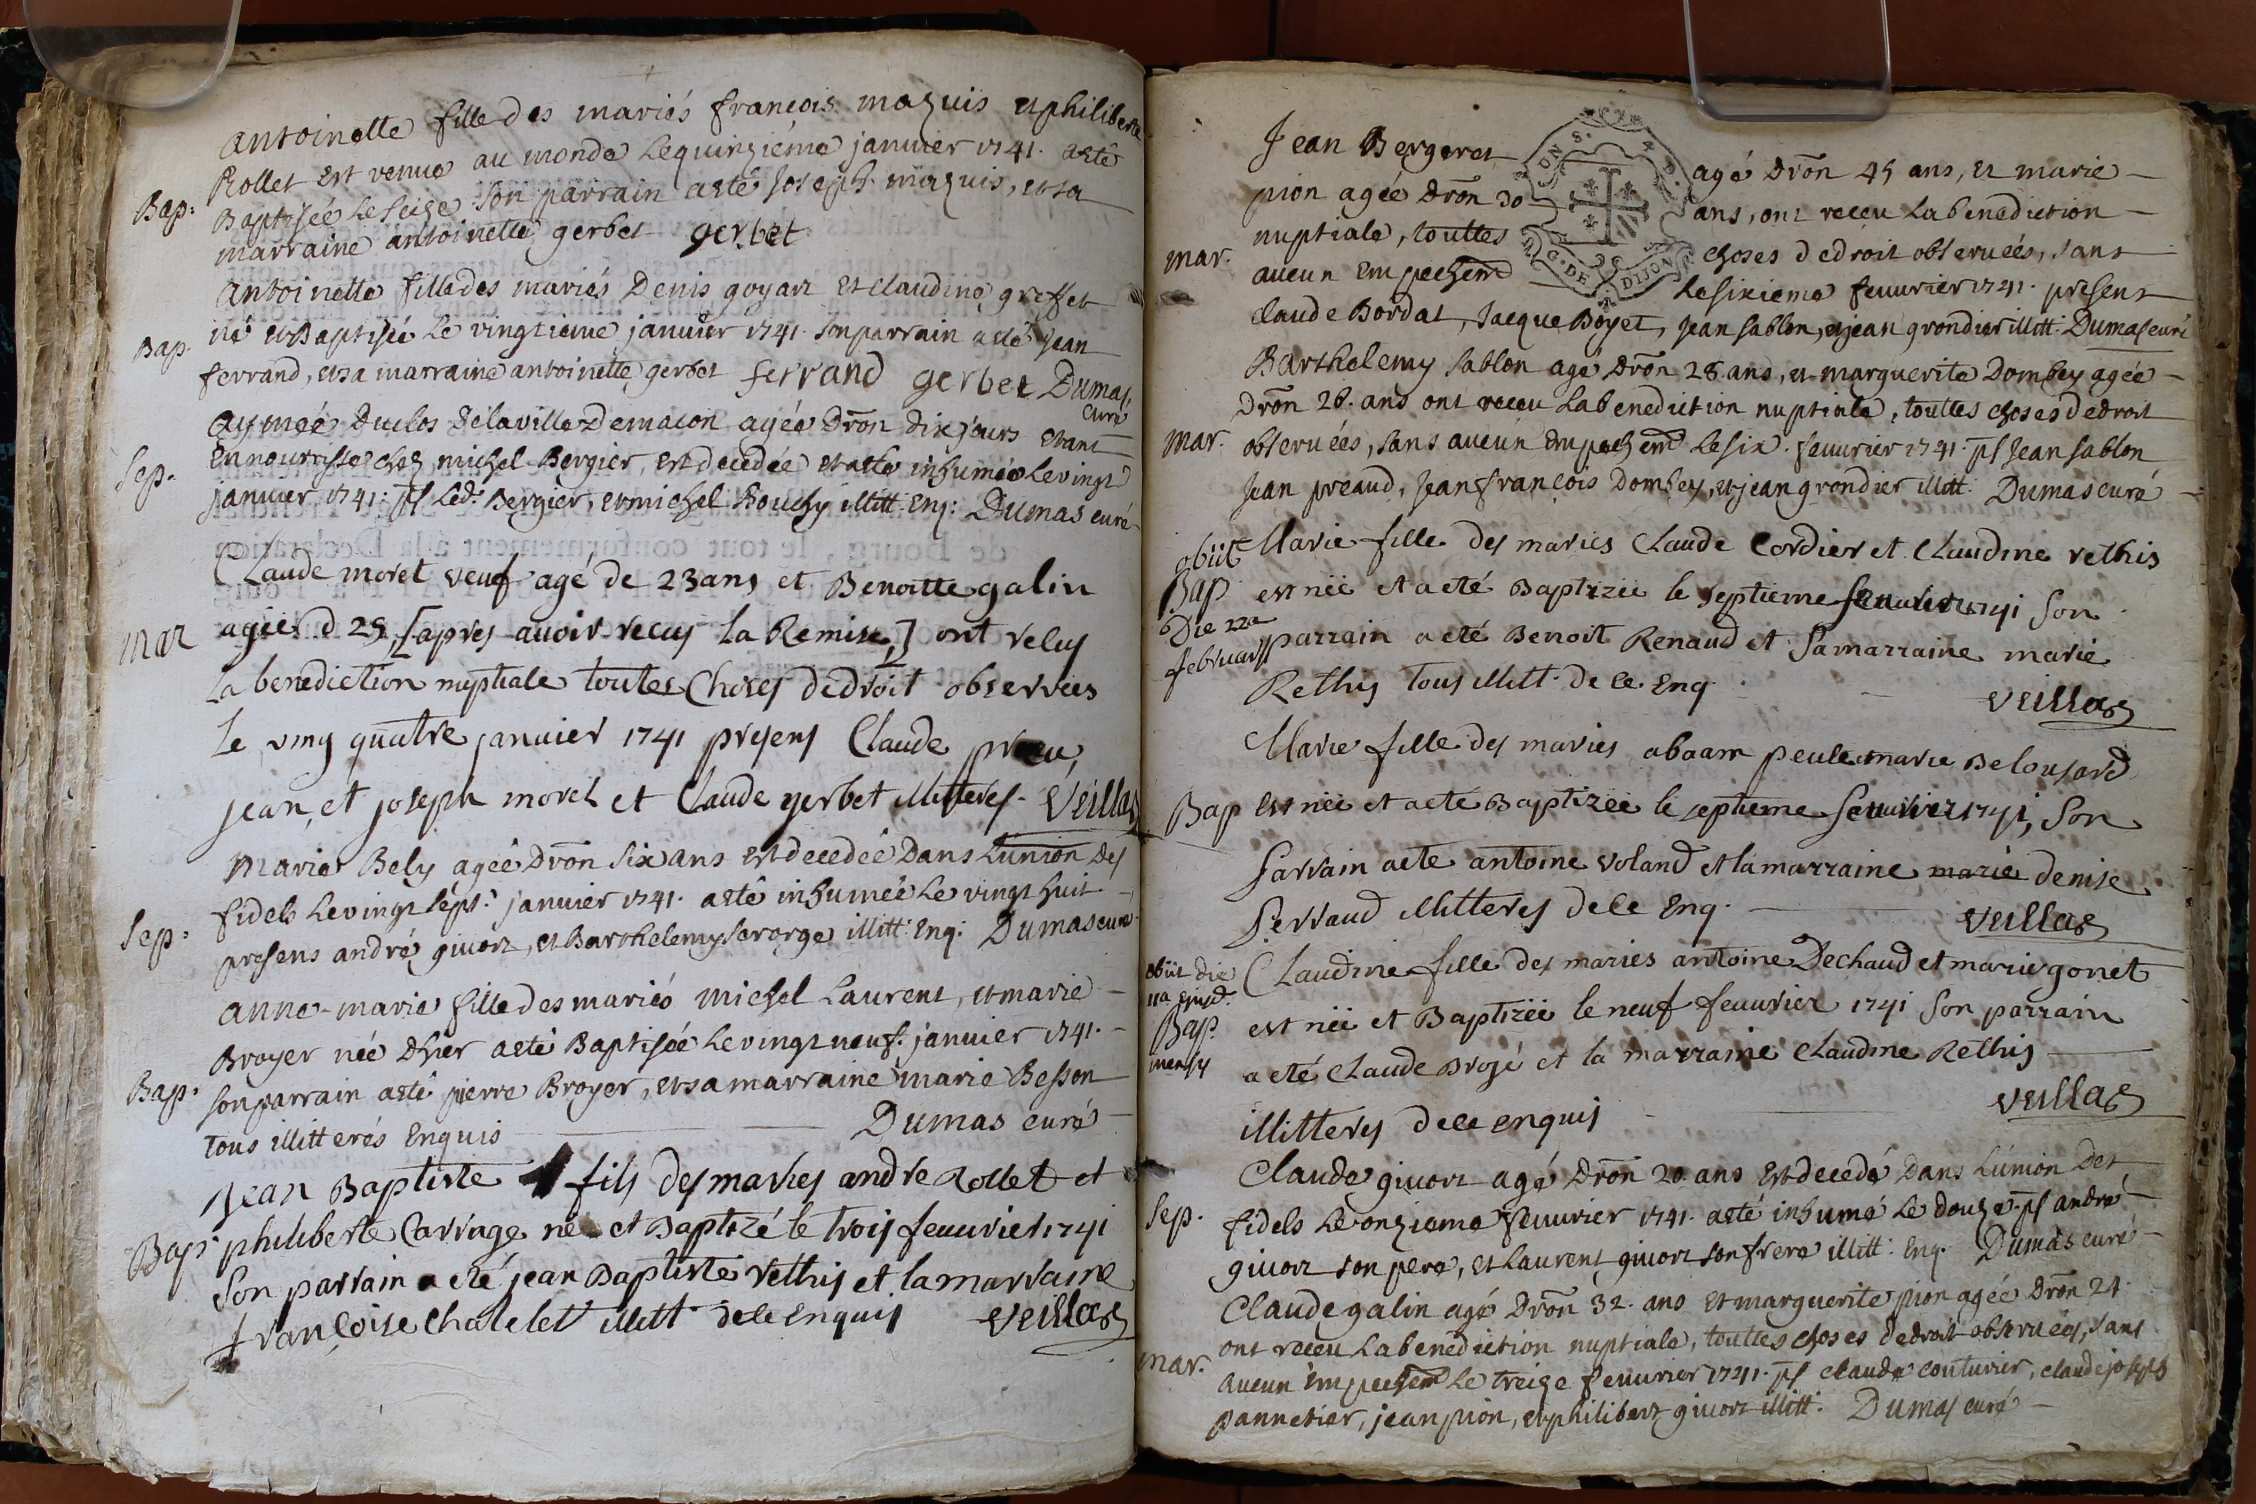 antoinette fille des mariés françois mazuis et philiberte
Rollet est venue au monde le quinzieme januier 1741. a etê
Bap: Baptisée le seize son parrain a eté Joseph mazuis, et sa
marraine antoinette gerbet gerbet
antoinette fille des mariés Denis goyart et claudine greffet
Bap. né et Baptisée le vingtieme januier 1741. son parrain a eté jean
ferrand, et sa marraine antoinette gerbet ferrand gerbet Dumas
curé
aymée Duclos de la ville de macon agée dron dix jours etant
Sep. en nourrisse chez michel Bergier, est decedée et a eté inhumée le vingt
januier 1741. pst led. Bergier, et michel Bouchy illitt. enq: Dumas curé
Claude moret veuf agé de 23 ans et Benoitte galin
mar agéé d 25, [apres auoir recus la Remise,] ont recus
la benediction nuptiale toutes choses de droit observees
le ving quatre januier 1741 presens Claude
jean, et joseph moret et Claude gerbet illitteres. Veillas
marie Bely agéé dron six ans est decedée dans l'union des
Sep. fidels le vingt sept. januier 1741. a etê inhumée le vingt huit
presens andré giuort, et Barthelemy ferorge illitt. enq: Dumas curé
anne-marie fille des mariés michel Laurent, et marie
Broyer née d'hier a eté Baptisée le vingt neuf. januier 1741.
Bap. son parrain a eté pierre Broyer, et sa marraine marie Besson
tous illitterés enquis Dumas curé
Jean Baptiste fils des maries andre Rollet et
Bap. philiberte Carruge né et Baptizé le trois feuurier 1741
son parrain a eté jean Baptiste rethis et la marraine
françoise chatelet illitt. de ce enquis Veillas
Jean Bergeret agé dron 45 ans, et marie
pion agée dron 30 ans, ont receu la benediction
mar. nuptiale, touttes choses de droit obseruéés, sans
aucun empechemt le sixieme feuurier 1741. present
claude Bordat, Jacque Boyet, jean sablon, et jean grondier illitt: Dumas curé
Barthelemy sablon agé dron 28 ans, et marguerite Dombey agée
dron 26. ans ont receu la benediction nuptiale, touttes choses de droit
mar. obseruées, sans aucun empechemt le six. feuurier 1741. pst Jean sablon
jean preaud, jean françois Dombey, et jean grondier illitt: Dumas curé
obiit Marie fille des maries Claude Cordier et Claudine rethis
Bap est néé et a eté Baptizéé le septieme feuurier 1741 son
Die 22a parrain a eté Benoit Renaud et sa marraine marie
februarii Rethis tous illitt. de ce enq. Veillas
Marie fille des maries abaam peule marie Belousard
Bap est néé et a eté Baptizéé le septieme feuurier 1741, son
parrain a eté antoine voland et la marraine marie denise
ferraud illitteres de ce enq. Veillas
obiit die Claudine fille des maries antoine Dechaud et marie gonet
11a ejusd. est néé et Baptizéé le neuf feuurier 1741 son parrain
Bap. a eté Claude Brosé et la marraine Claudine Rethis
mensis illitteres de ce enquis Veillas
Claude giuort agé dron 20. ans est decedé dans l'union des
Sep. fidels le onzieme feuurier 1741. a eté inhumé le douze. pst andré
giuort son pere, et Laurent giuort son frere illitt: enq. Dumas curé
Claude galin agé dron 32. ans et marguerite pion agée dron 24.
ont receu la benediction nuptiale, touttes choses de droit obseruées, sans
mar. aucun empechemt le treize feuurier 1741. pst claude couturier, claude joseph
pannetier, jean pion, et philibert giuort illitt. Dumas curé